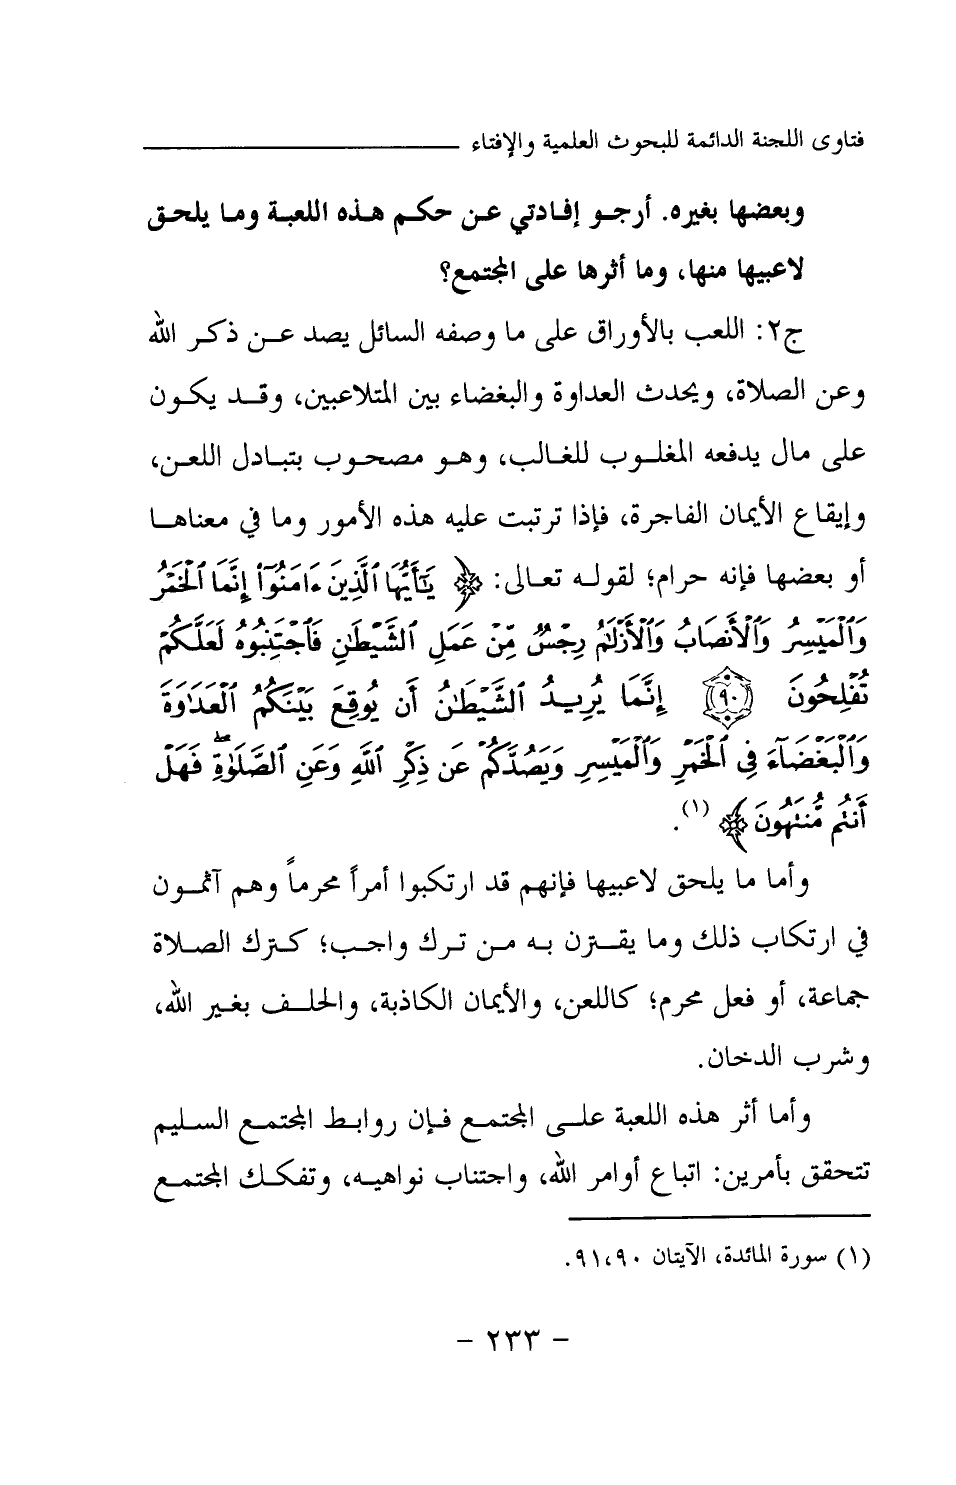 فتاوى اللجنة الدائمة للبحوث العلمية والإفتاء
وبعضها بغيره. أرجو إفادتي عن حكم هذه اللعبة وما يلحق
لاعبيها منها، وما أثرها على المجتمع؟
ج٢: اللعب بالأوراق على ما وصفه السائل يصد عن ذكر الله
وعن الصلاة، ويحدث العداوة والبغضاء بين المتلاعبين، وقد يكون
على مال يدفعه المغلوب للغالب، وهو مصحوب بتبادل اللعن،
وإيقاع الأيمان الفاجرة، فإذا ترتبت عليه هذه الأمور وما في معناها
أو بعضها فإنه حرام؛ لقوله تعالى: ﴿ يَٰٓأَيُّهَا ٱلَّذِينَ ءَامَنُوٓا۟ إِنَّمَا ٱلْخَمْرُ
وَٱلْمَيْسِرُ وَٱلْأَنصَابُ وَٱلْأَزْلَٰمُ رِجْسٌ مِّنْ عَمَلِ ٱلشَّيْطَٰنِ فَٱجْتَنِبُوهُ لَعَلَّكُمْ
تُفْلِحُونَ ۝٩٠ إِنَّمَا يُرِيدُ ٱلشَّيْطَٰنُ أَن يُوقِعَ بَيْنَكُمُ ٱلْعَدَٰوَةَ
وَٱلْبَغْضَآءَ فِى ٱلْخَمْرِ وَٱلْمَيْسِرِ وَيَصُدَّكُمْ عَن ذِكْرِ ٱللَّهِ وَعَنِ ٱلصَّلَوٰةِ ۖ فَهَلْ
أَنتُم مُّنتَهُونَ ﴾ (١).
وأما ما يلحق لاعبيها فإنهم قد ارتكبوا أمراً محرماً وهم آثمون
في ارتكاب ذلك وما يقترن به من ترك واجب؛ كترك الصلاة
جماعة، أو فعل محرم؛ كاللعن، والأيمان الكاذبة، والحلف بغير الله،
وشرب الدخان.
وأما أثر هذه اللعبة على المجتمع فإن روابط المجتمع السليم
تتحقق بأمرين: اتباع أوامر الله، واجتناب نواهيه، وتفكك المجتمع
(١) سورة المائدة، الآيتان ٩١،٩٠.
- ٢٣٣ -